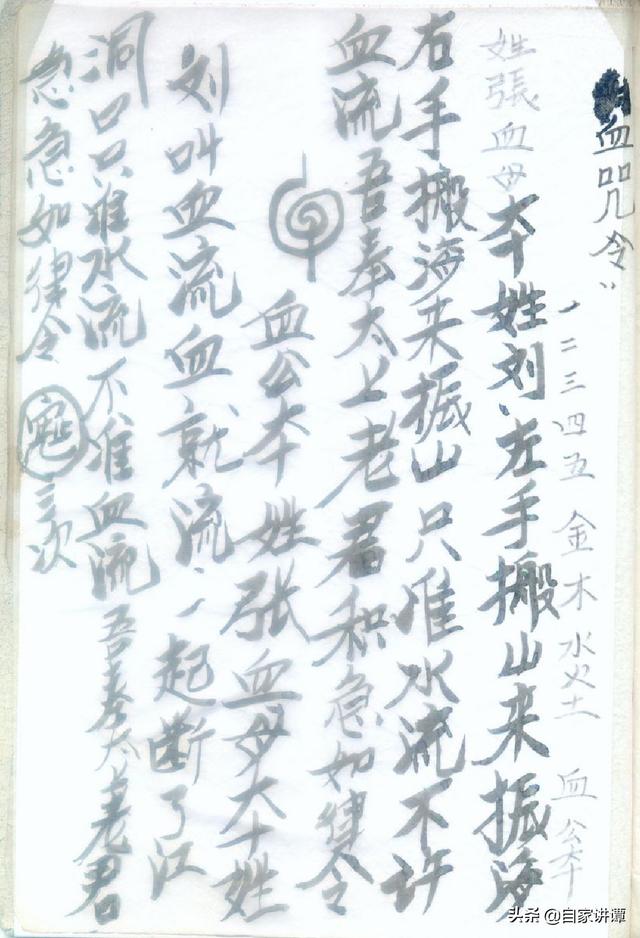 血咒令
一二三四五 金木水火土 血公夲
姓張血母夲姓刘左手搬山来振海
右手搬海来振山只准水流不许
血流吾奉太上老君积急如律令
血公夲姓张血母夲姓
刘叫血流血就流一起断了江
洞口只准水流不准血流吾奉太老君
急急如律令 三次
头条 @自家讲谭